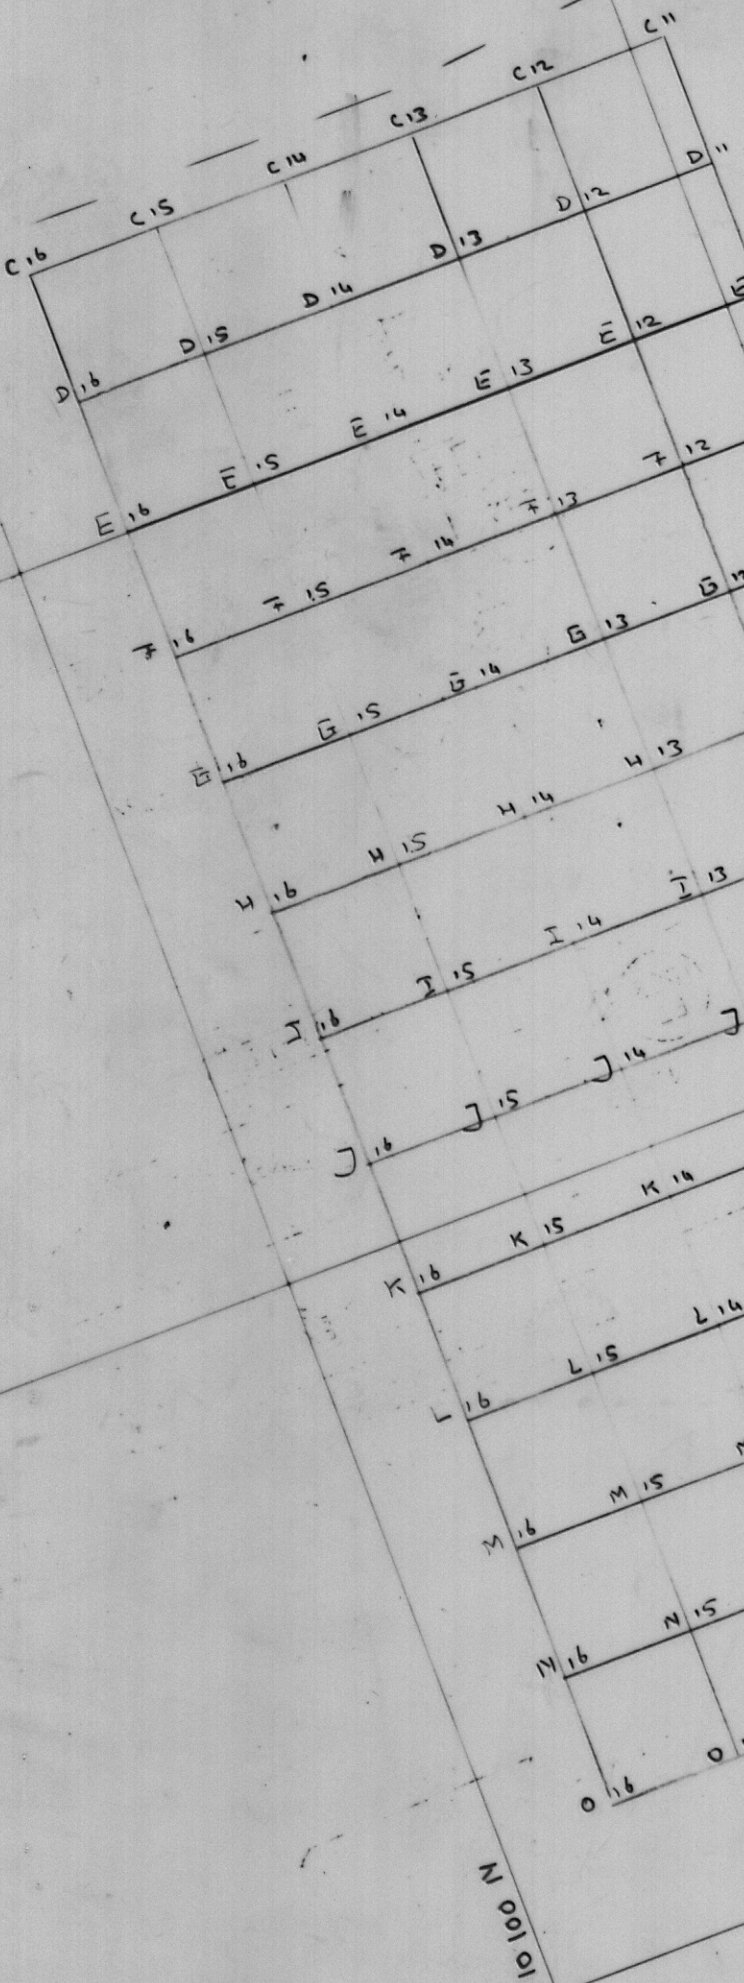 C16 C15 C14 C13 C12 C11
D16 D15 D14 D13 D12 D11
E16 E15 E14 E13 E12 E
F16 F15 F14 F13 F12
G16 G15 G14 G13 G12
H16 H15 H14 H13
I16 I15 I14 I13
J16 J15 J14 J
K16 K15 K14
L16 L15 L14
M16 M15
N16 N15
O16 O
10 100 N